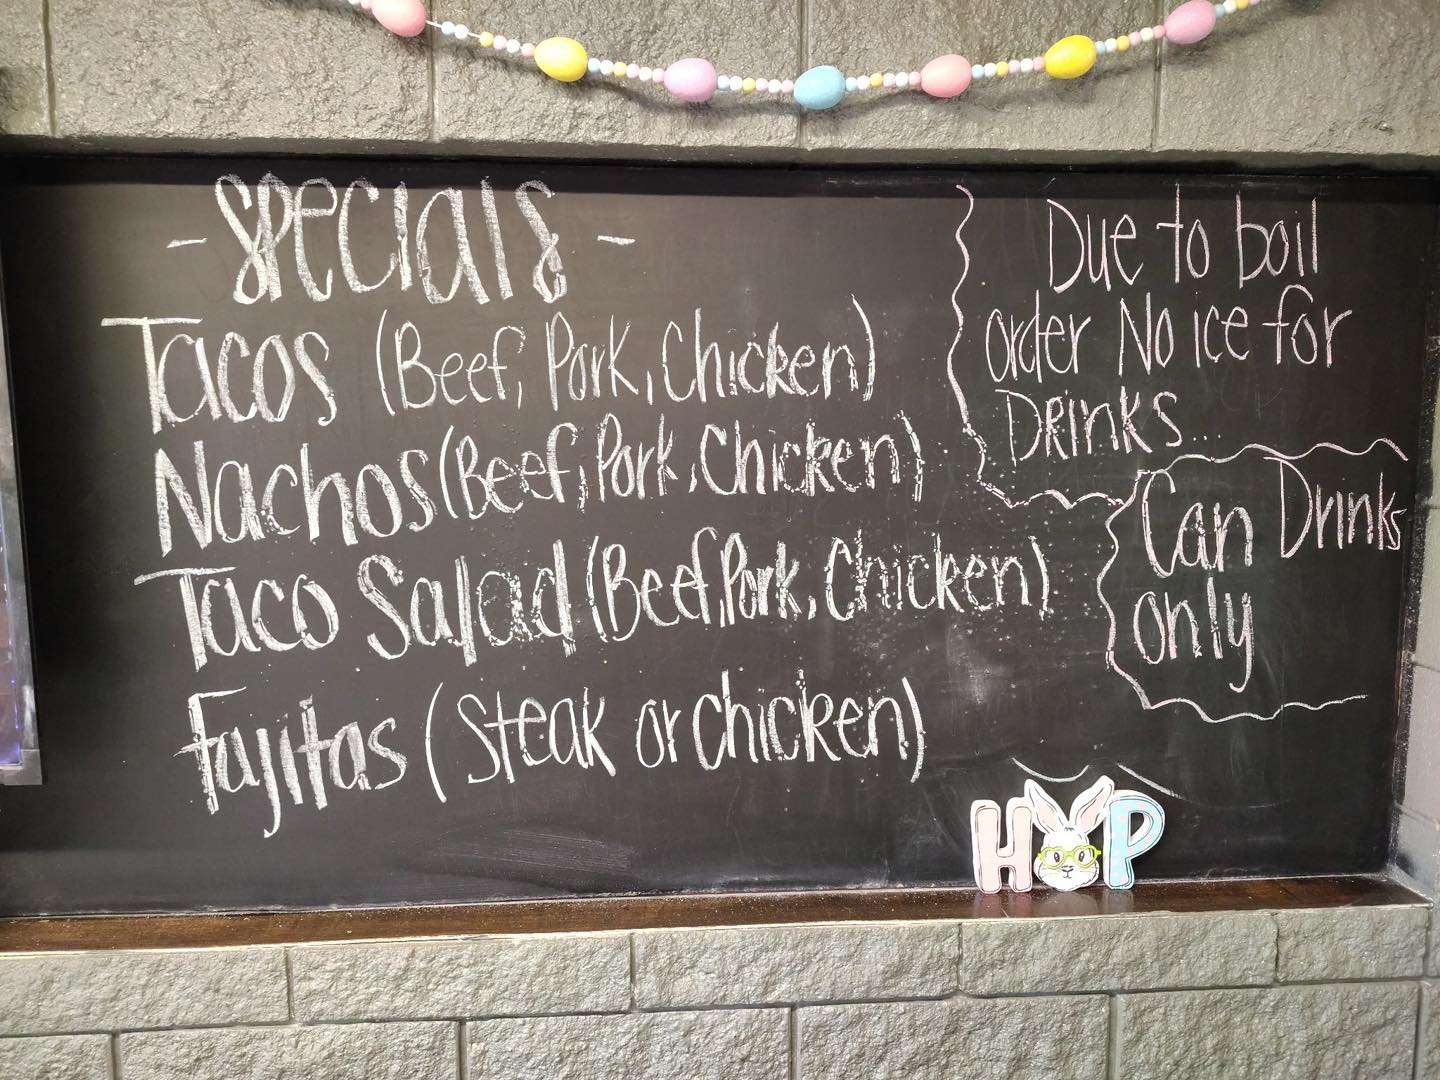 - Specials -
Tacos (Beef, Pork, Chicken)
Nachos (Beef, Pork, Chicken)
Taco Salad (Beef, Pork, Chicken)
Fajitas (Steak or Chicken)
Due to boil
order No ice for
DRinks...
Can Drinks
only
HOP